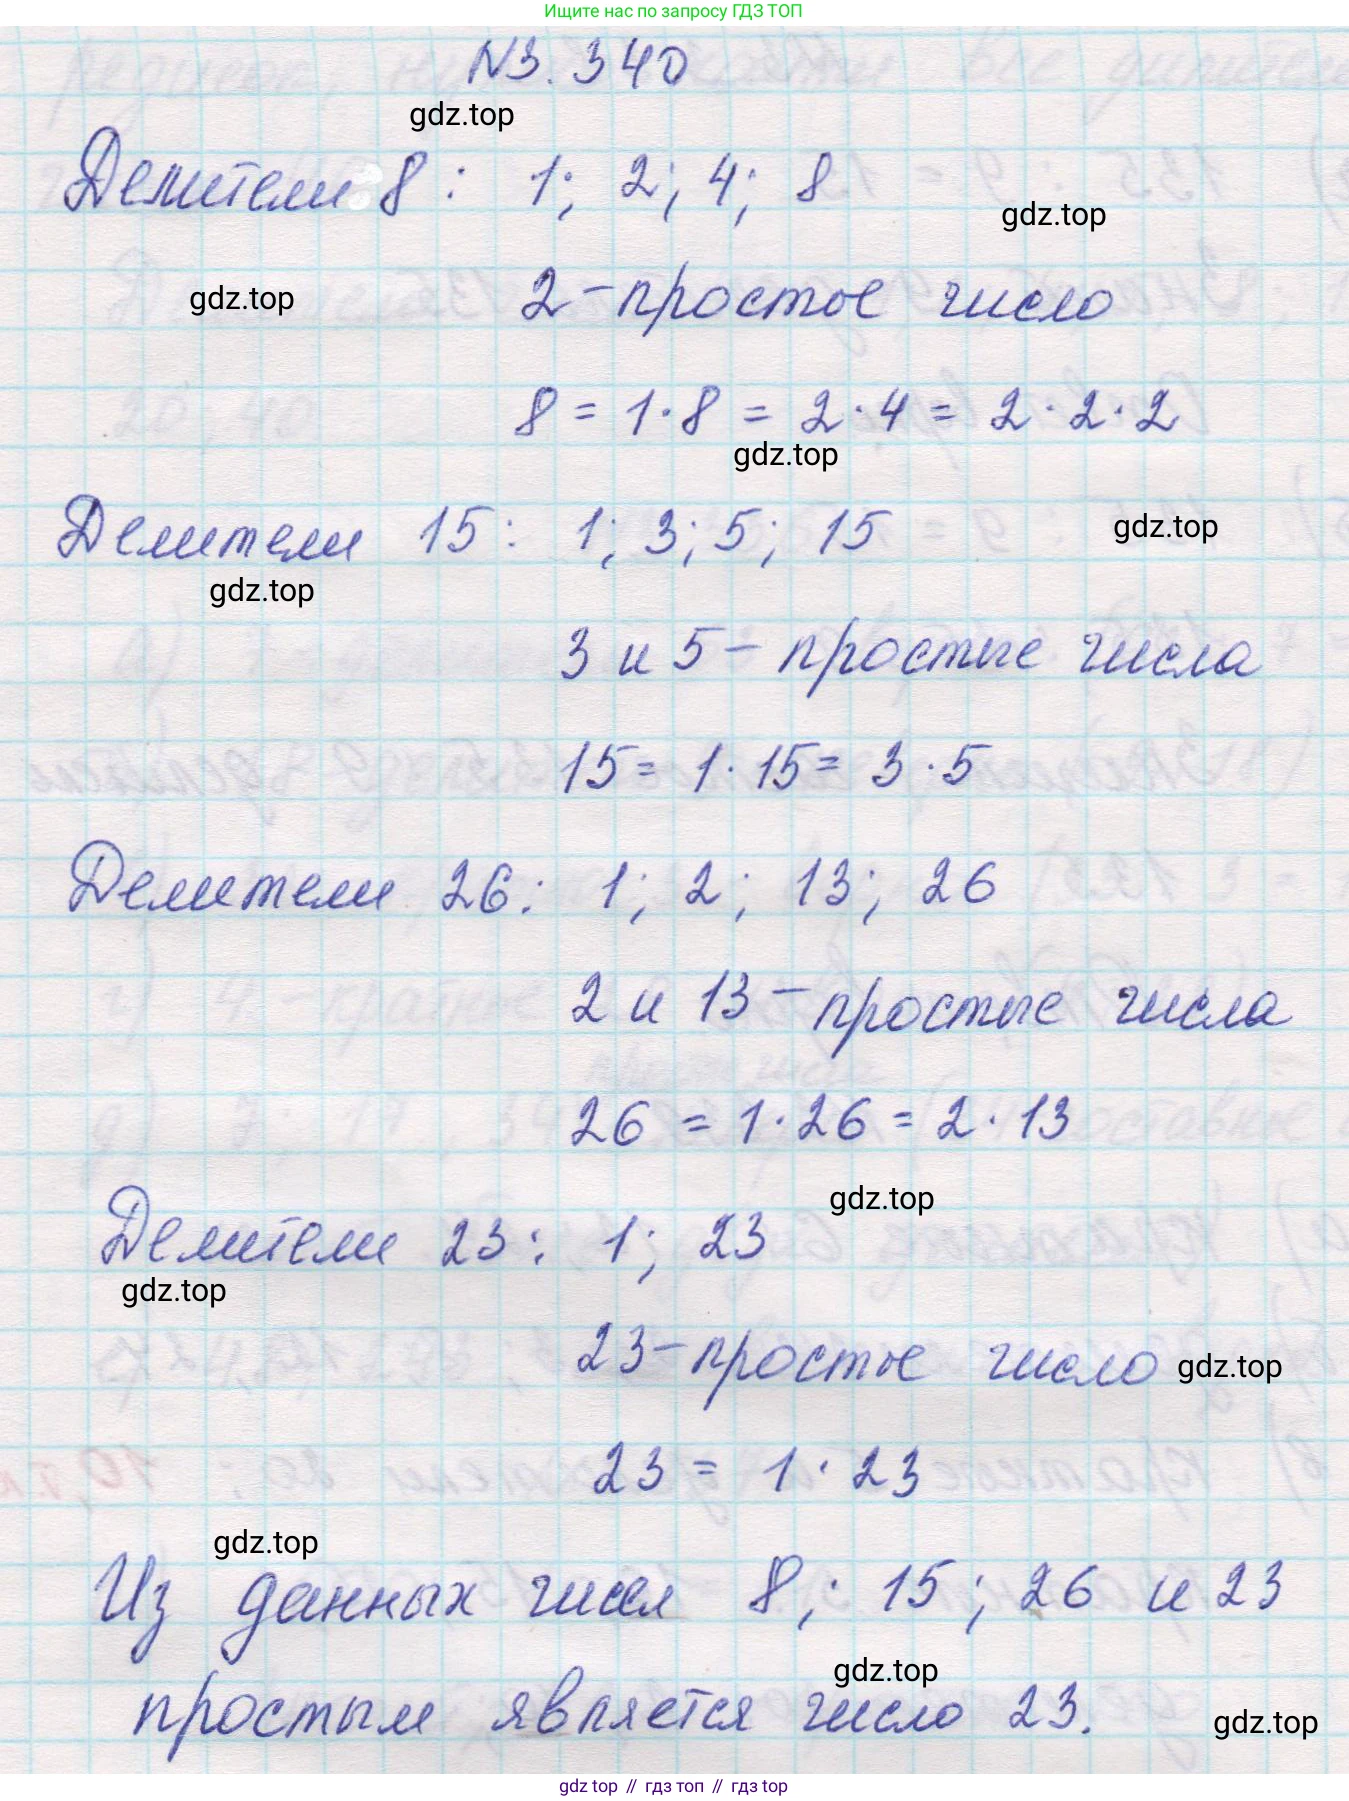 Ищите нас по запросу ГДЗ ТОП
N3. 340
gdz.top
Делители 8 : 1; 2; 4; 8
gdz.top
gdz.top
2 - простое число
8 = 1 · 8 = 2 · 4 = 2 · 2 · 2
gdz.top
Делители 15 : 1; 3; 5; 15
gdz.top
gdz.top
3 и 5 - простые числа
15 = 1 · 15 = 3 · 5
Делители 26 : 1; 2; 13; 26
2 и 13 - простые числа
26 = 1 · 26 = 2 · 13
gdz.top
Делители 23 : 1; 23
gdz.top
23 - простое число
gdz.top
23 = 1 · 23
gdz.top
Из данных чисел 8; 15; 26 и 23
gdz.top
простым является число 23.
gdz.top
gdz top // гдз топ // гдз top